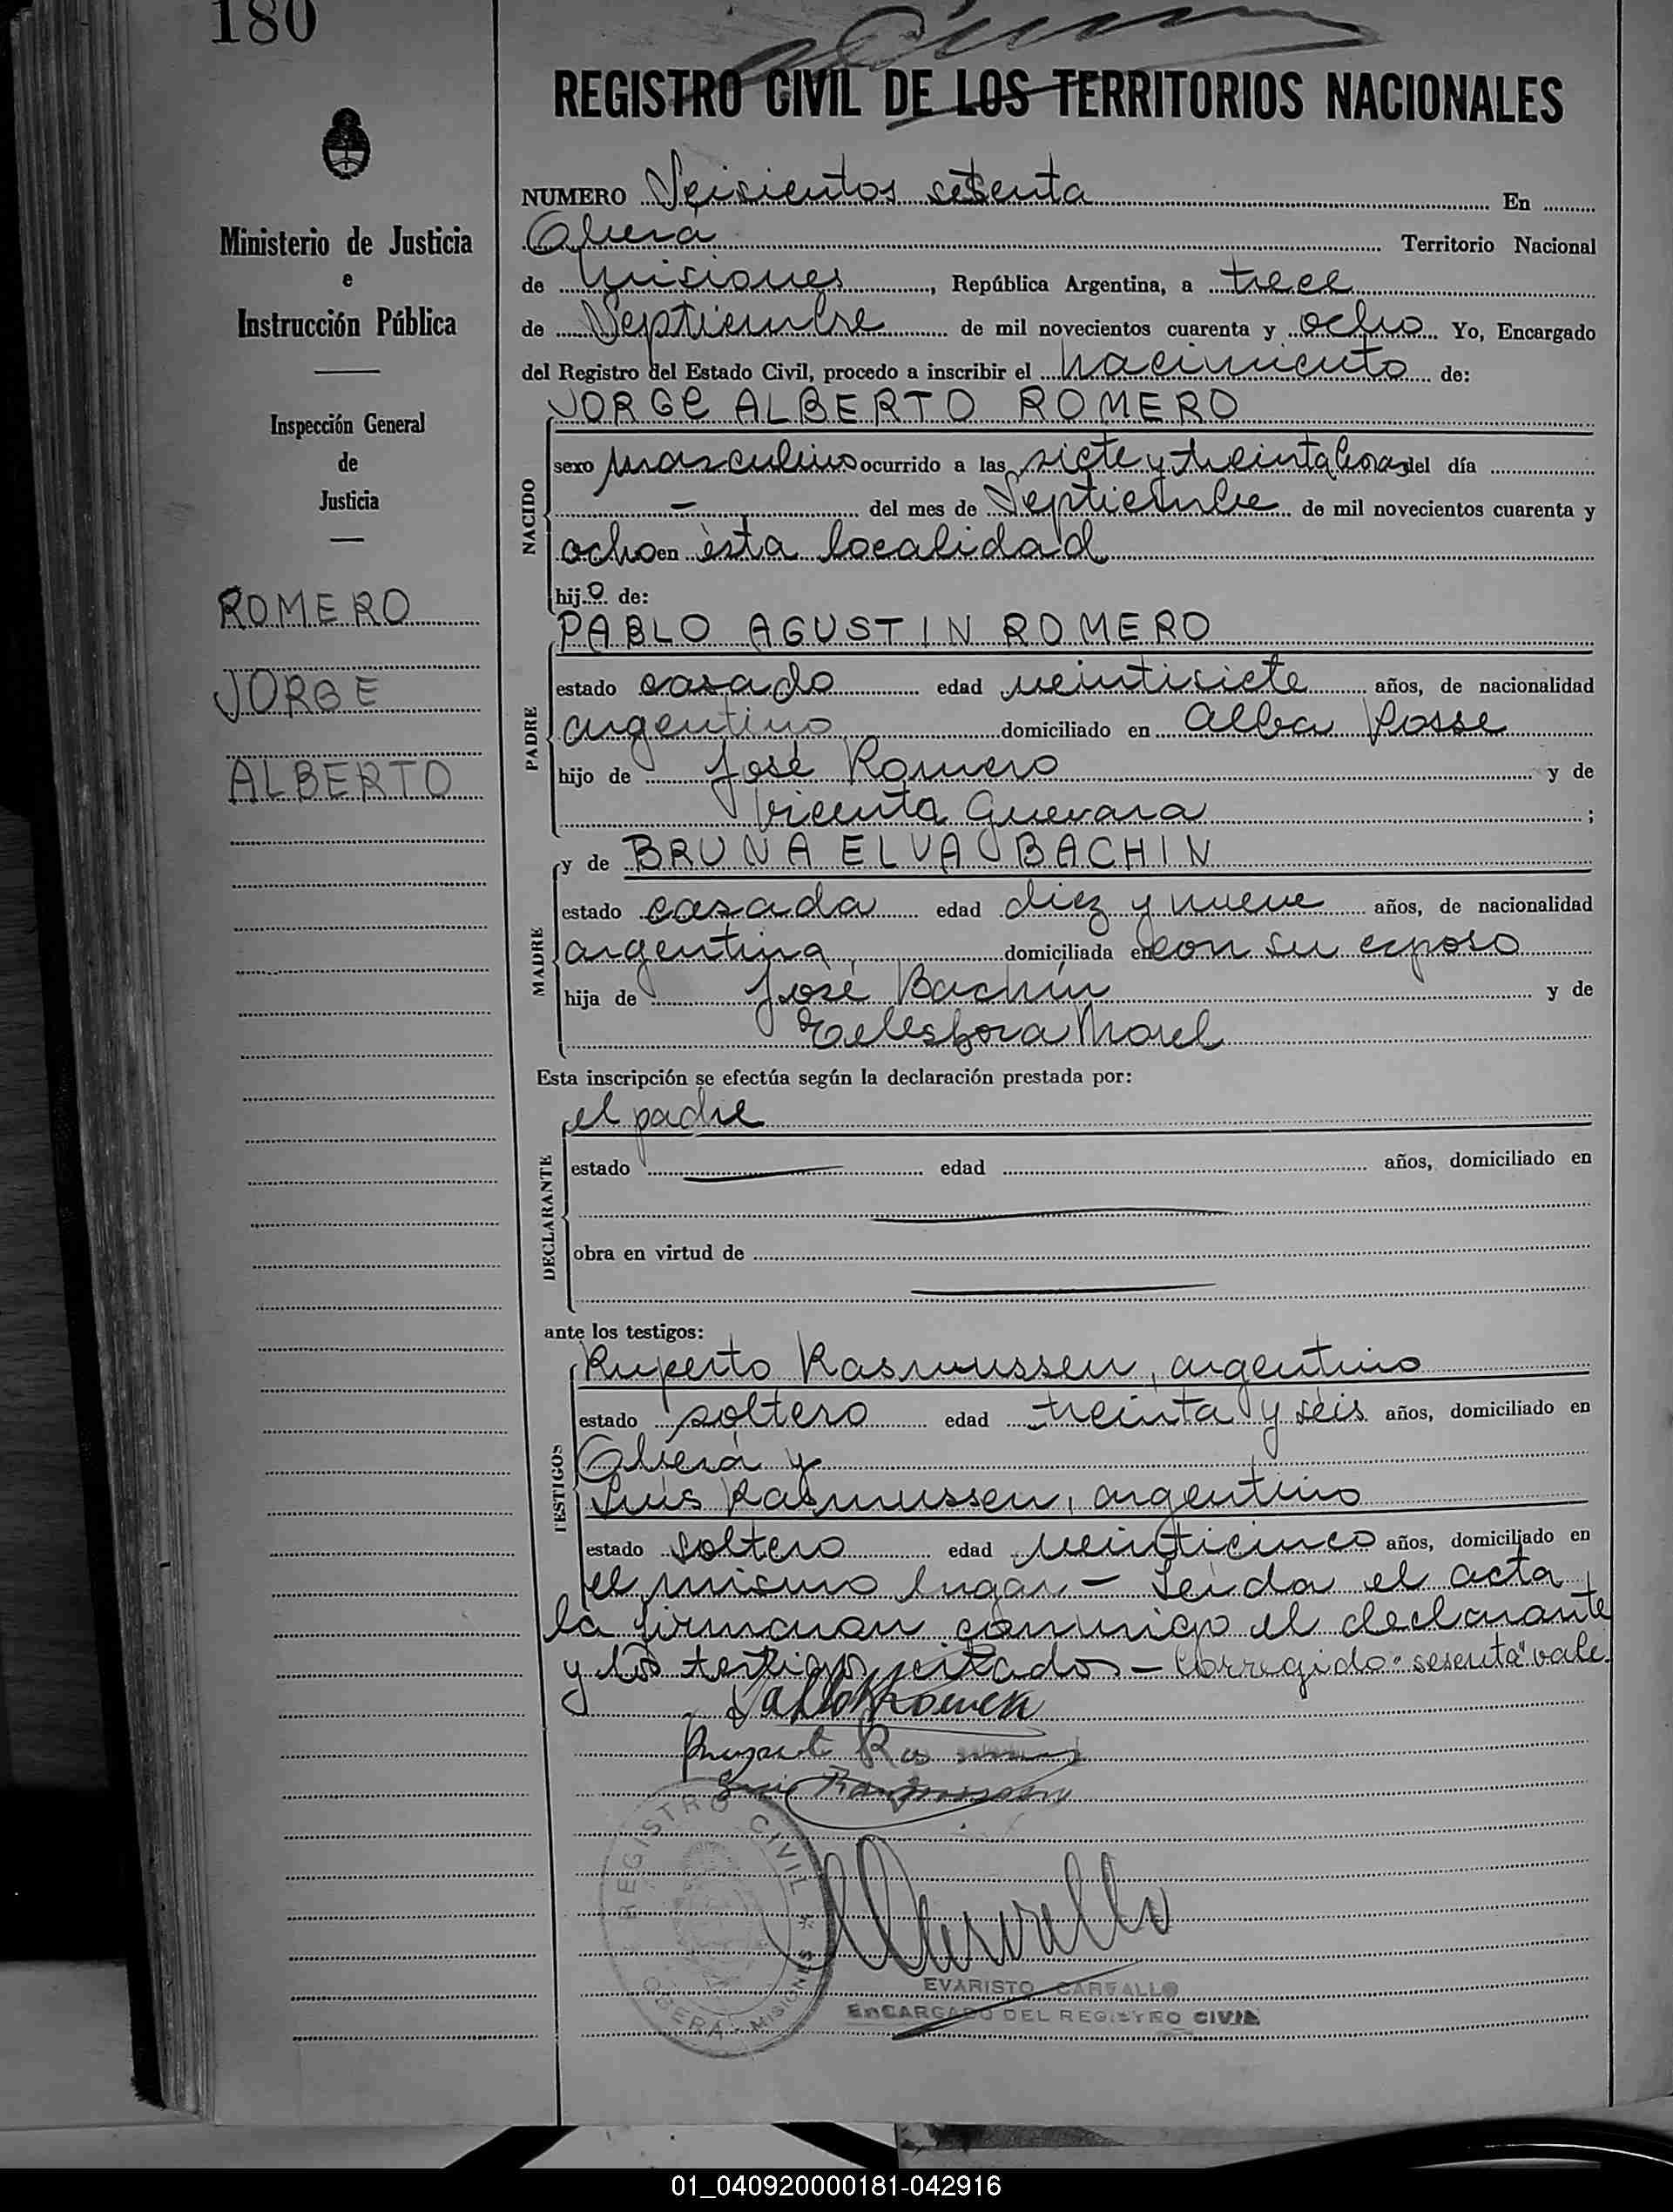 180
REGISTRO CIVIL DE LOS TERRITORIOS NACIONALES
Ministerio de Justicia
e
Instrucción Pública
Inspección General
de
Justicia
ROMERO
JORGE
ALBERTO
NUMERO Seisientos sesenta En
Oberá Territorio Nacional
de Misiones, República Argentina, a trece
de Septiembre de mil novecientos cuarenta y ocho Yo, Encargado
del Registro del Estado Civil, procedo a inscribir el nacimiento de:
NACIDO
JORGE ALBERTO ROMERO
sexo masculino ocurrido a las siete y treinta horas del día
- del mes de Septiembre de mil novecientos cuarenta y
ocho en ésta localidad
hijo de:
PADRE
PABLO AGUSTIN ROMERO
estado casado edad veintisiete años, de nacionalidad
argentino domiciliado en Alba Posse
hijo de José Romero y de
Vicenta Guevara ;
MADRE
y de BRUNA ELVA BACHIN
estado casada edad diez y nueve años, de nacionalidad
argentina, domiciliada en con su esposo
hija de José Bachín y de
Telesfora Morel
Esta inscripción se efectúa según la declaración prestada por:
DECLARANTE
el padre
estado edad años, domiciliado en
obra en virtud de
ante los testigos:
TESTIGOS
Ruperto Rasmussen, argentino
estado soltero edad treinta y seis años, domiciliado en
Oberá y
Luis Rasmussen, argentino
estado soltero edad veinticinco años, domiciliado en
el mismo lugar - Leida el acta
la firmaran conmigo el declarante
y los testigos citados - Corregido "sesenta" vale.
Pablo Romero
REGISTRO CIVIL * OBERA - MISIONES
EVARISTO CARVALLO
ENCARGADO DEL REGISTRO CIVIL
01_040920000181-042916